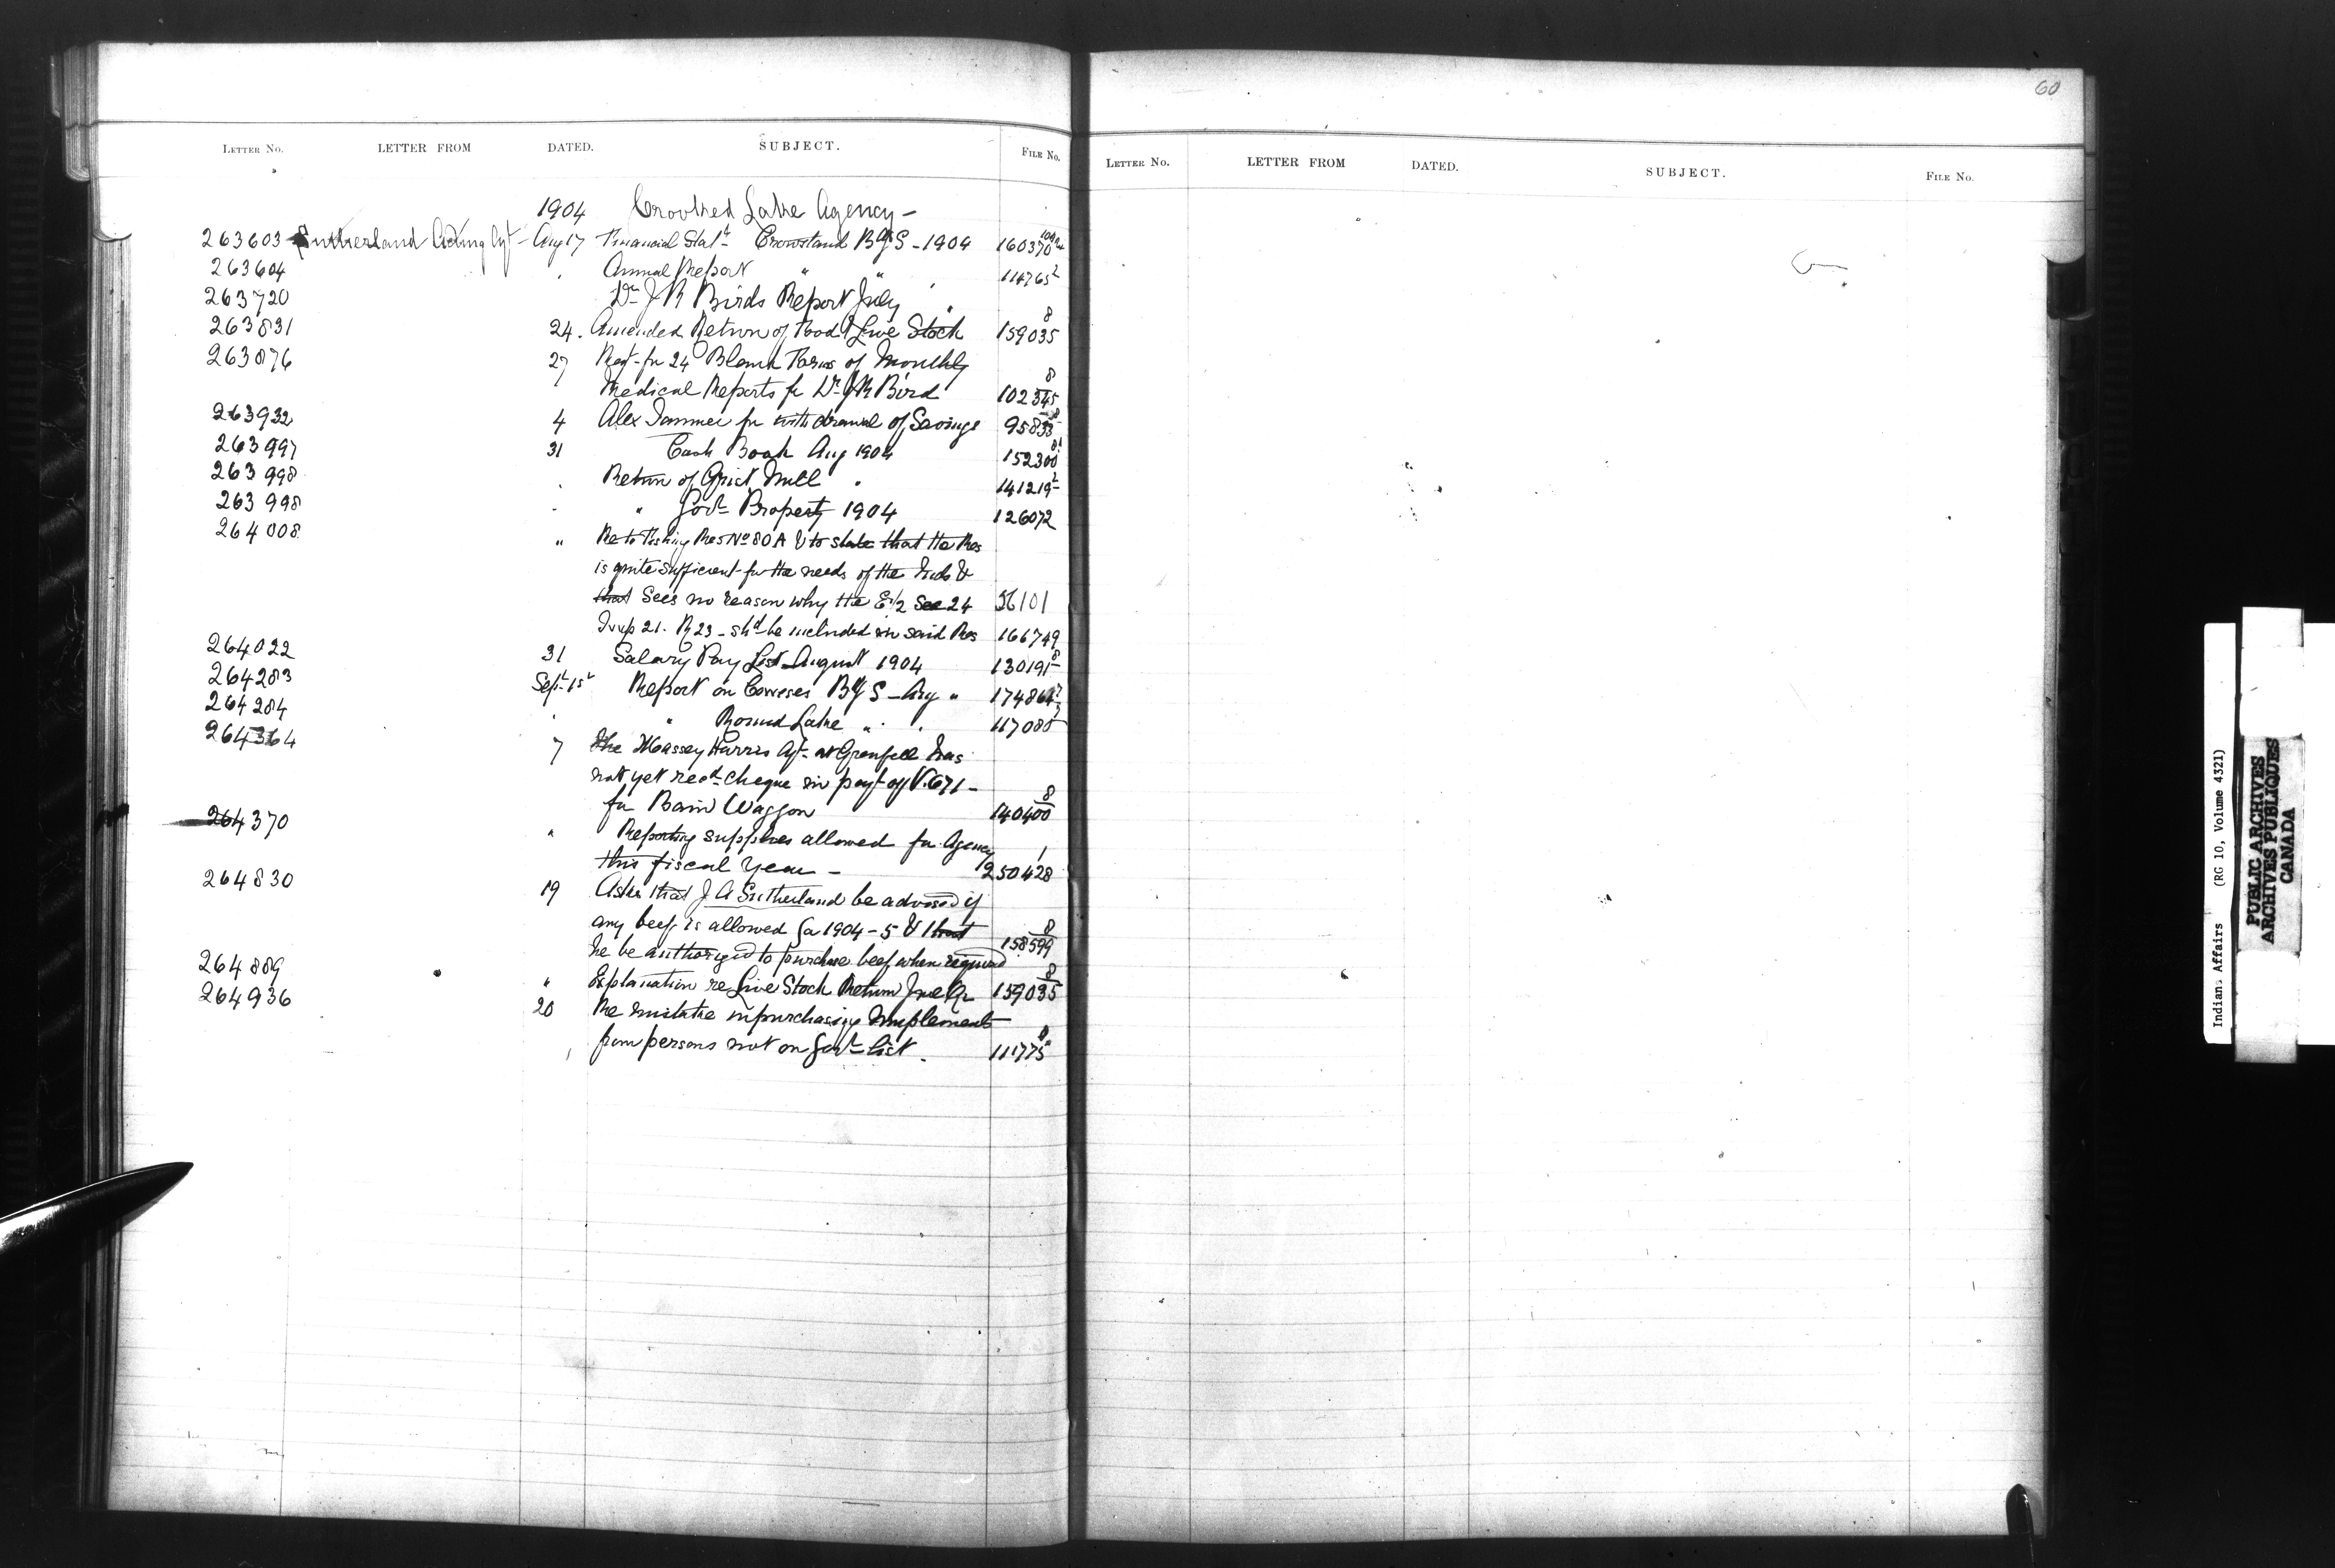 LETTER NO. LETTER FROM DATED. SUBJECT. FILE NO.
1904 Crooked Lake Agency -
263603 Sutherland Acting Agt - Aug 17 Financial Stat't Crowstand BgS - 1904 160370
263604 Annual Report " " 114765²
263720 Dr J R Birds Report July "
263831 24. Amended Return of Food & Live Stock 159035⁸
263876 27 Req- for 24 Blank Forms of Monthly
Medical Reports for Dr J R Bird 102345⁸
263932 4 Alex for withdrawal of Savings 95833
263997 31 Cash Book Aug 1904 152300
263998 . Return of Grist Mill " 141219²
263998 " Govt Property 1904 126072
264008 " Re to Fishing Res No 80A & to state that the Res
is quite sufficient for the needs of the Inds &
that sees no reason why the E 1/2 Sec 24 36101
Twp 21. R 23 - shd be included in said Res 166749
264022 31 Salary Pay List August 1904 130191⁸
264283 Sept 1st Report on Coweses BgS - Aug " 174864
264284 " Round Lake " . . 117085
264364 7 The Massey Harris Agt- at Grenfell has
not yet recd cheque in payt of V. 671 -
for Bain Waggon 140400⁸
264370 " Reporting supplies allowed for Agency
this fiscal year - 250428¹
264830 19 Asks that J A Sutherland be advised if
any beef is allowed for 1904-5 & that
he be authorized to purchase beef when required 158599⁸
264889 " Explanation re Live Stock Return June Qr 159035⁸
264936 20 Re mistake in purchasing Implements
from persons not on Govt list . 111775
60
LETTER NO. LETTER FROM DATED. SUBJECT. FILE NO.
Indian Affairs (RG 10, Volume 4321)
PUBLIC ARCHIVES
ARCHIVES PUBLIQUES
CANADA